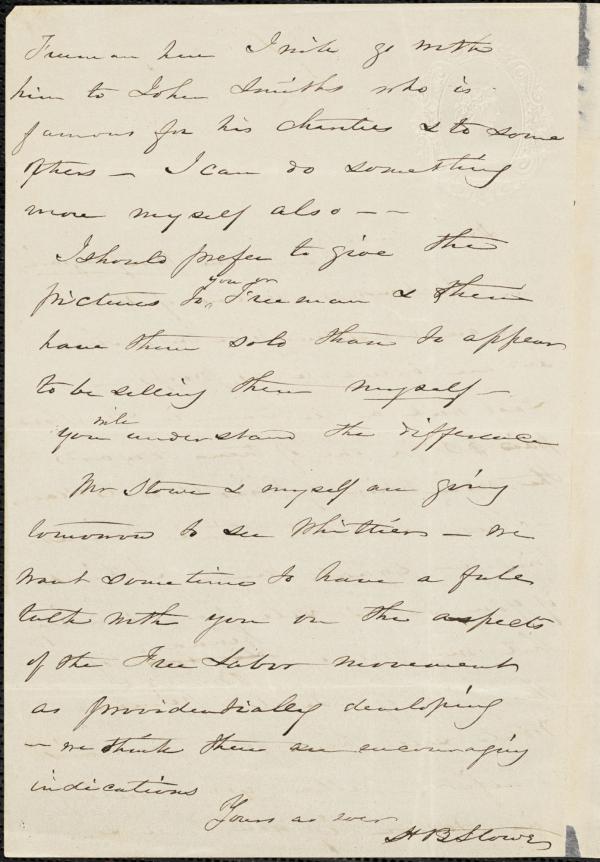 Freeman here I will go with
him to John Smiths who is
famous for his charities & to some
others — I can do something
more myself also — —
I should prefer to give the
you or
pictures to Freeman & 
have them sold than to appear
to be selling them myself —
will
you understand the difference
Mr Stowe & myself are going
tomorrow to see Whittiers — we
want sometime to have a full
talk with you on the aspects
of the Free Labor movement
as providentially developing
— we think there are encouraging
indications
Yours as ever
H B Stowe